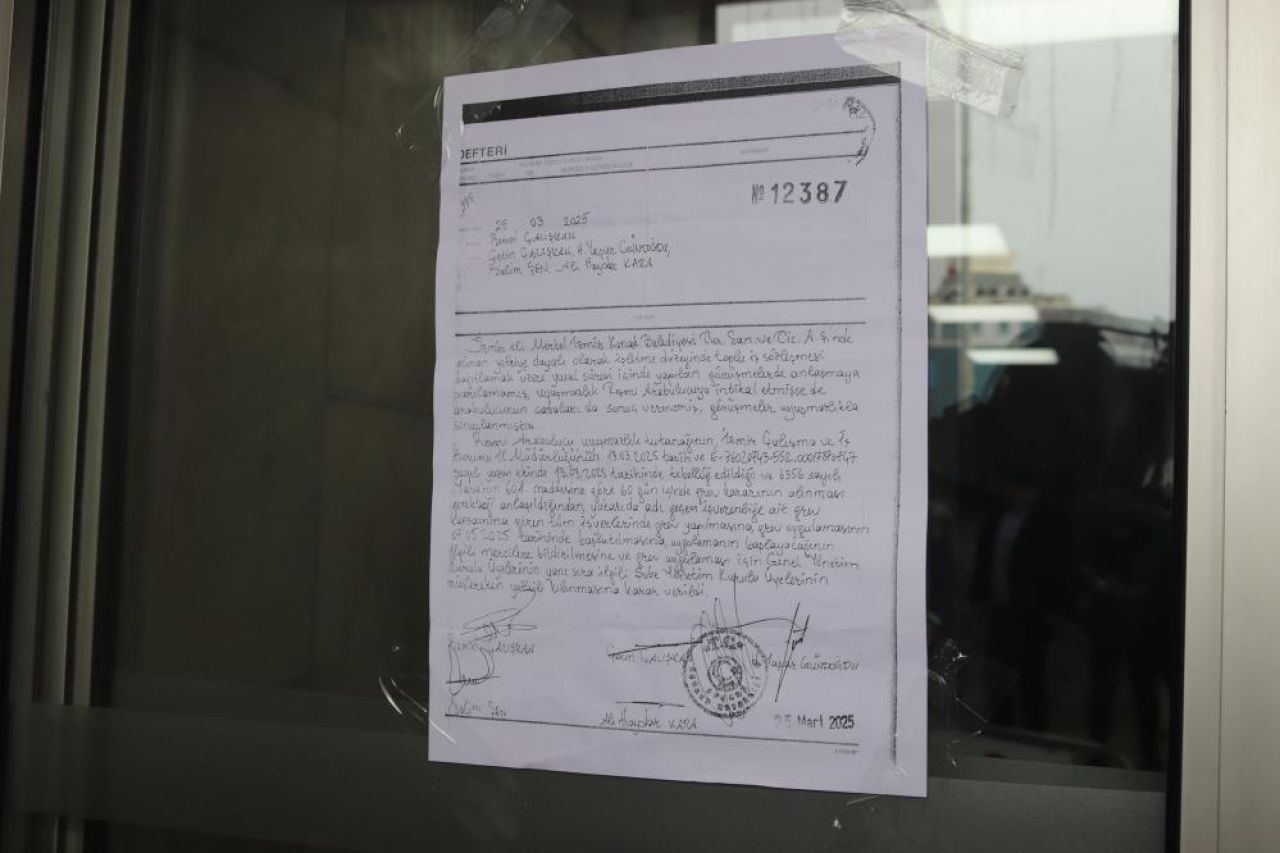 DEFTERİ
№ 12387
25 03 2025
Remzi ÇALIŞKAN
Çetin ÇALIŞKAN, H. Yaşar GÜNDOĞDU,
Selim ŞEN, Ali Haydar KARA
İzmir ili Merkel İzmir Konak Belediyesi Tur. San. ve Tic. A.Ş.'inde
alınan yetkiye dayalı olarak işletme düzeyinde toplu iş sözleşmesi
bağıtlamak üzere yasal süresi içinde yapılan görüşmelerde anlaşmaya
varılamamış, uyuşmazlık Resmi Arabulucuya intikal etmişse de
arabulucunun çabaları da sonuç vermemiş, görüşmeler uyuşmazlıkla
sonuçlanmıştır.
Resmi Arabulucu uyuşmazlık tutanağının, İzmir Çalışma ve İş
Kurumu İl Müdürlüğünün 13.03.2025 tarih ve
sayılı yazısı ekinde 13.03.2025 tarihinde tebellüğ edildiği ve 6356 sayılı
Yasanın 60/1. maddesine göre 60 gün içinde grev kararının alınması
gerektiği anlaşıldığından, yukarıda adı geçen işverenliğe ait grev
kapsamına giren tüm işyerlerinde grev yapılmasına, grev uygulamasının
07.05.2025 tarihinde başlatılmasına, uygulamanın başlayacağının
ilgili mercilere bildirilmesine ve grev uygulaması için Genel Yönetim
Kurulu Üyelerinin yanı sıra ilgili Şube Yönetim Kurulu Üyelerinin
müştereken yetkili kılınmasına karar verildi.
Remzi ÇALIŞKAN
Çetin ÇALIŞKAN
H. Yaşar GÜNDOĞDU
Selim ŞEN
Ali Haydar KARA
25 Mart 2025